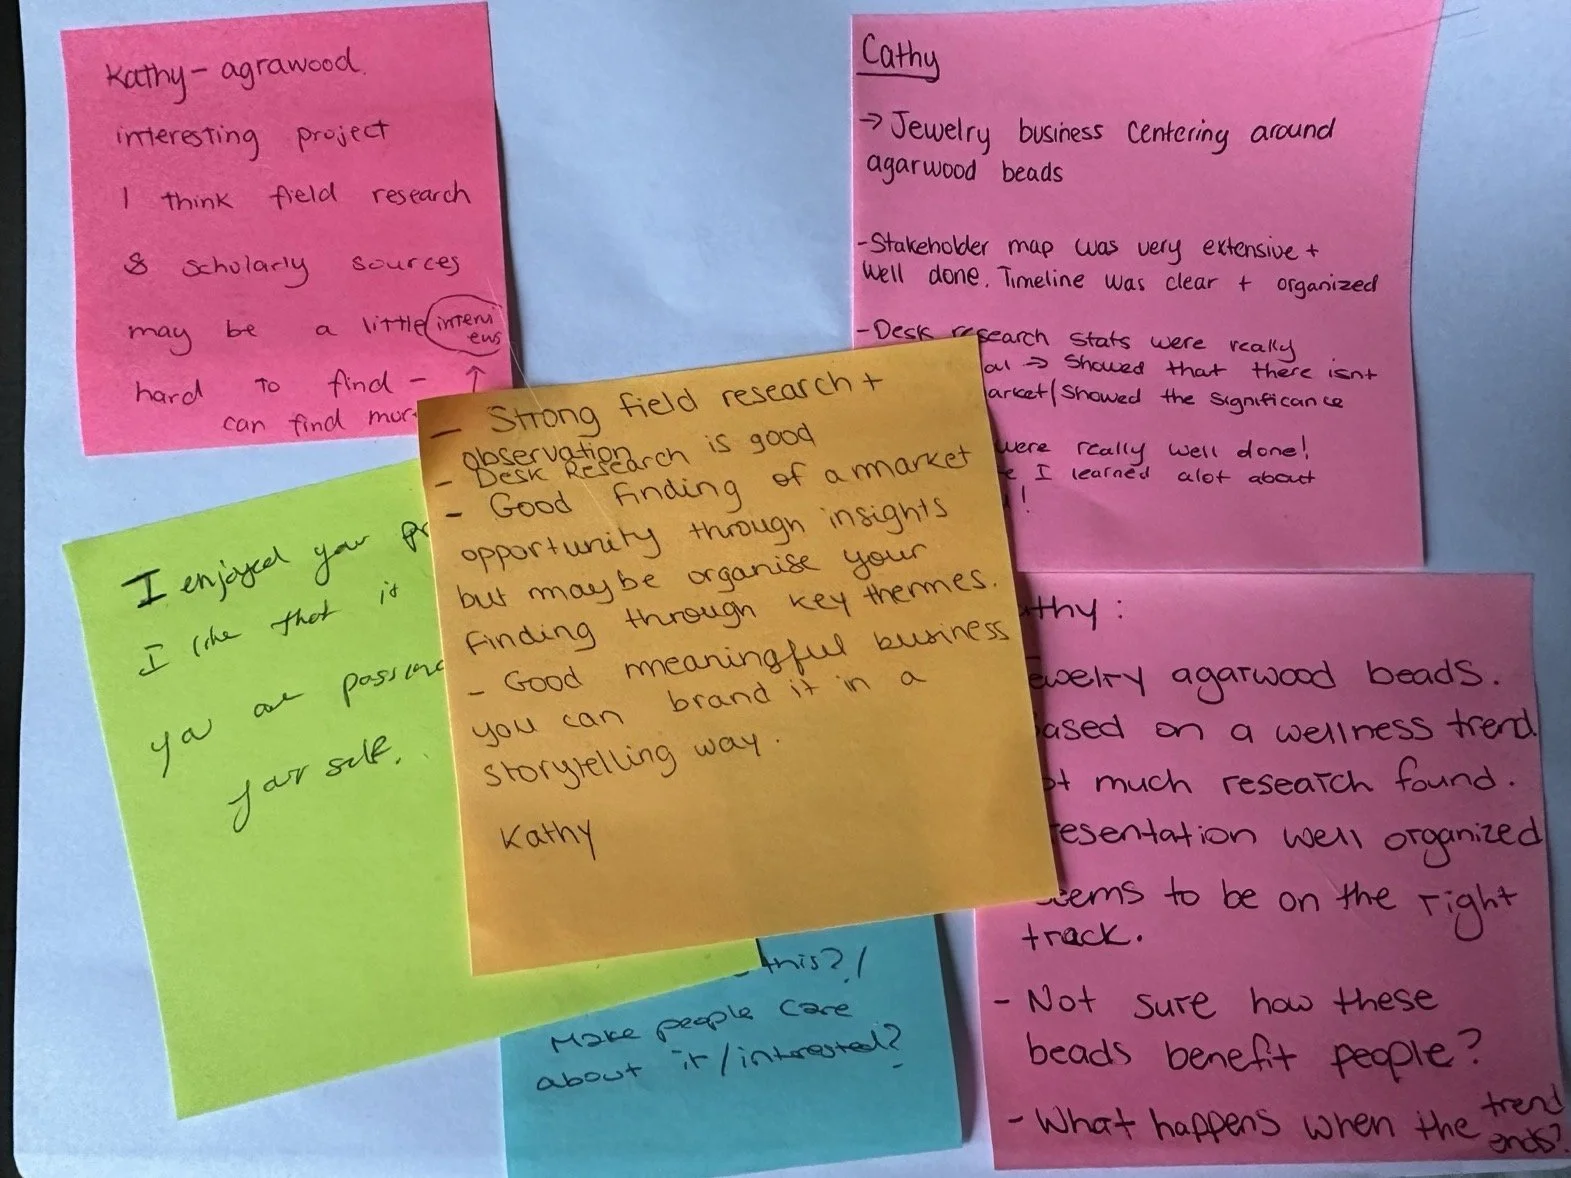 Kathy - agrawood.
interesting project
I think field research
& scholarly sources
may be a little
hard to find -
can find
intervi
ews
Cathy
→ Jewelry business centering around
agarwood beads
- Stakeholder map was very extensive +
well done. Timeline was clear + organized
- Desk research stats were really
→ Showed that there isnt
/ Showed the significance
were really well done!
I learned alot about
!
I enjoyed your
I like that it
you are
your self.
- Strong field research +
observation
- Desk Research is good
- Good finding of a market
opportunity through insights
but maybe organise your
finding through key thermes.
- Good meaningful business
you can brand it in a
storytelling way.
Kathy
this? /
Make people care
about it / interested?
athy :
ewelry agarwood beads.
ased on a wellness trend.
ot much research found.
resentation well organized
eems to be on the right
track.
- Not sure how these
beads benefit people?
- What happens when the trend
ends?